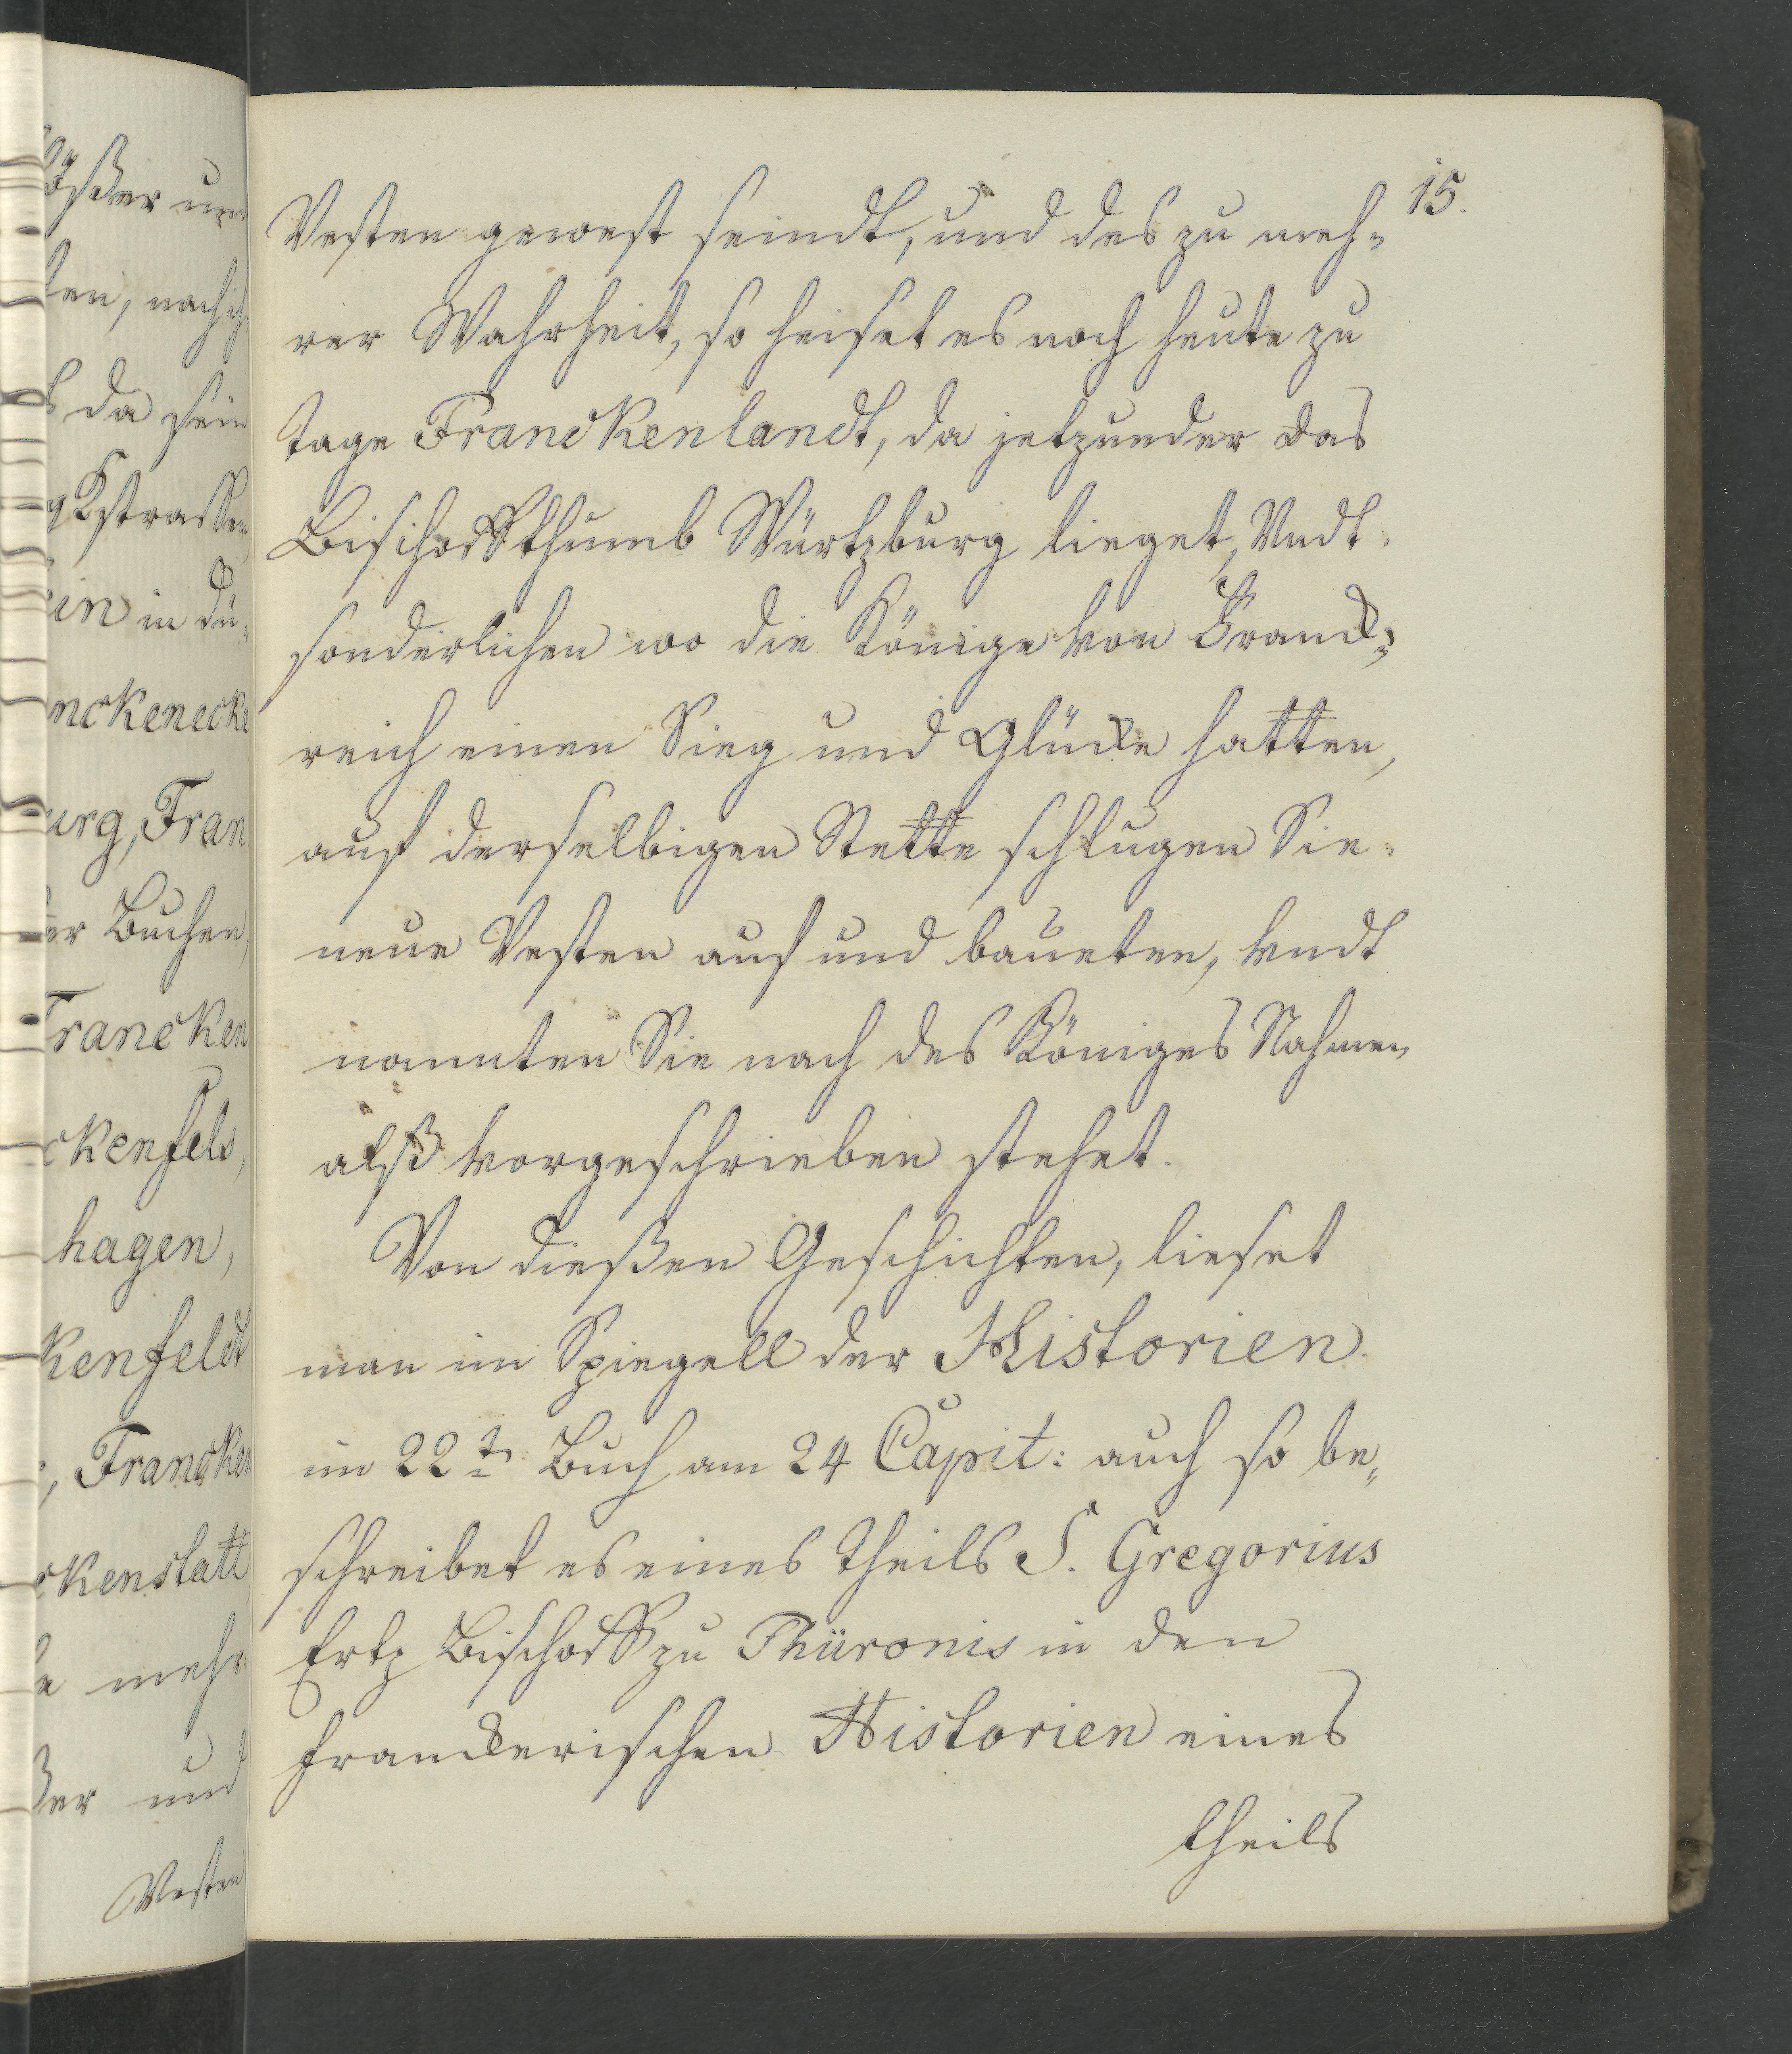 15.
Vesten gewest seindt, und des zu meh=
rer Wahrheit, so heiset es noch heute zu
tage Franckenlandt, da jetzunder das
Bischoffthumb Würtzburg lieget, Vndt
sonderlichen wo die Könige von Franck=
reich einen Sieg und Glücke hatten,
auf derselbigen Stette schlugen Sie
neue Vesten auf und baueten, vndt
nannten Sie nach des Königes Nahmen
alß vorgeschrieben stehet.
Von dießen Geschichten, lieset
man im Spiegell der Historien.
im 22t Buch am 24 Capit: auch so be„
schreibet es eines theils S. Gregorius
Ertz Bischoff zu Thüronis in den
franckerischen Historien eines
theils